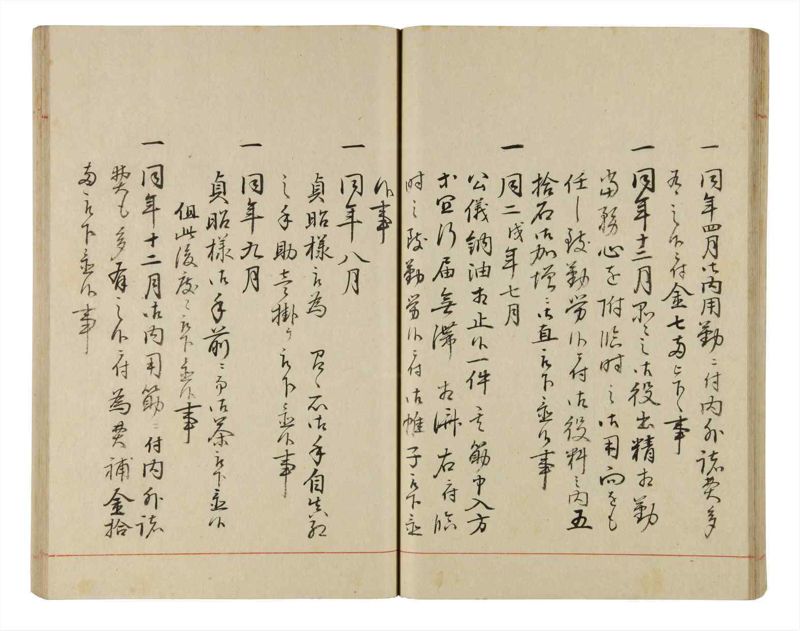 一同年四月御内用勤ニ付内外諸費多
有之候付金七両被下候事
一同年十二月 之御役出精相勤
当務心を附臨時之御用向をも
任し致勤労候付御役料之内五
拾石御加増 直被下置候事
一同二戌年七月
公儀銅油相止候一件 筋申入方
才宜行届無滞相済右ニ付臨
時之致勤労候付御帷子被下置
候事
一同年八月
貞昭様被為 召御手自
之手助壱掛ケ被下置候事
一同年九月
貞昭様御手前ニ而御茶被下置候
但此後度々被下置候事
一同年十二月御内用筋ニ付内外諸
費も多有之候付為費補金拾
両被下置候事